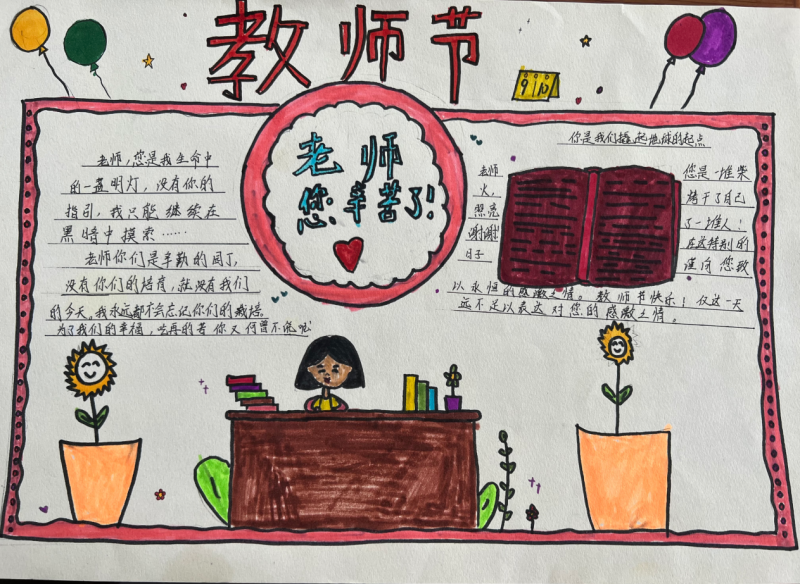 教师节
9 10
老师
您辛苦了!
老师,您是我生命中
的一盏明灯,没有你的
指引,我只能继续在
黑暗中摸索……
老师你们是辛勤的园丁,
没有你们的培育,就没有我们
的今天,我永远都不会忘记你们的栽培。
为了我们的幸福,吃再的苦你又何曾不说
你是我们撬起地球的起点
老师 您是一堆柴
火, 烤干了自己
照亮 了一堆人!
谢谢! 在这特别的
日子 谨向您致
以永恒的感激之情。教师书快乐!仅这一天
远不足以表达对您的感激之情。